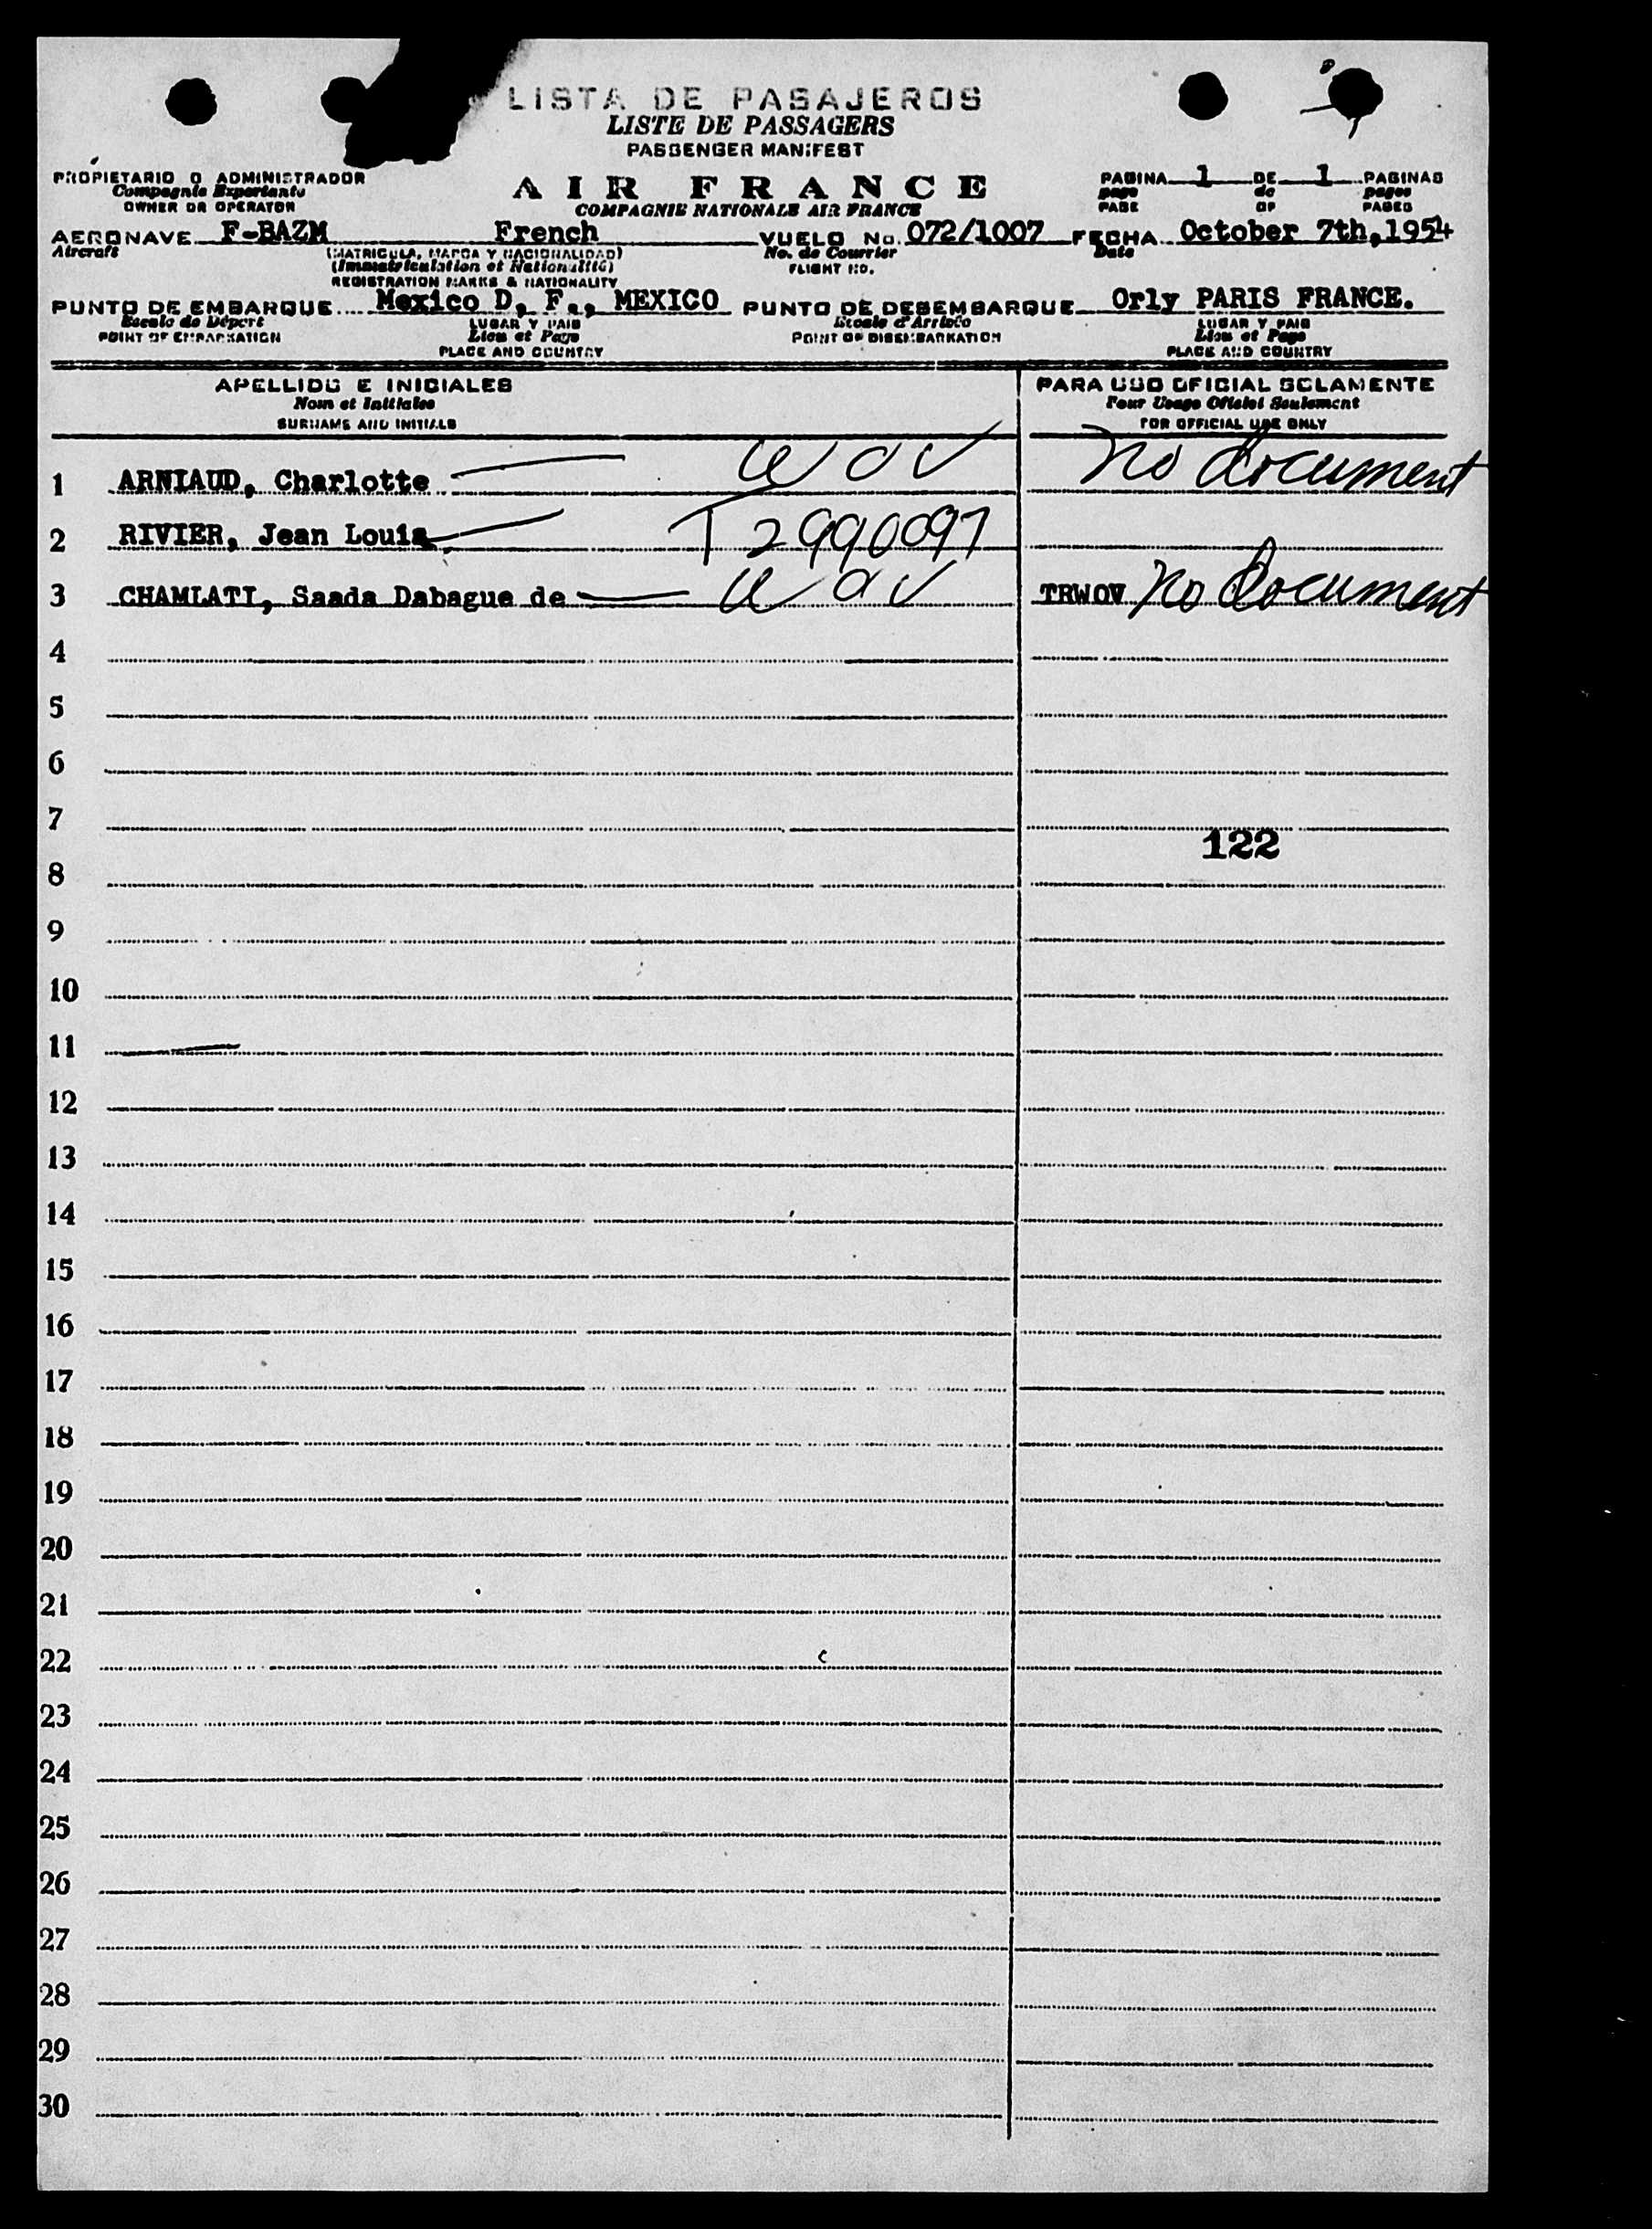 LISTA DE PASAJEROS
LISTE DE PASSAGERS
PASSENGER MANIFEST
PROPIETARIO O ADMINISTRADOR
Compagnie Exportante
OWNER OR OPERATOR
AIR FRANCE
COMPAGNIE NATIONALE AIR FRANCE
PAGINA 1 DE 1 PAGINAS
page de pages
PAGE OF PAGES
AERONAVE F-BAZM French VUELO No. 072/1007 FECHA October 7th, 1954
Aircraft (MATRICULA, MARCA Y NACIONALIDAD) No. de Courrier Date
(Immatriculation et Nationalité) FLIGHT NO.
REGISTRATION MARKS & NATIONALITY
PUNTO DE EMBARQUE Mexico D, F., MEXICO PUNTO DE DESEMBARQUE Orly PARIS FRANCE.
Escale de Départ LUGAR Y PAIS Escale d'Arrivée LUGAR Y PAIS
POINT OF EMBARKATION Lieu et Pays POINT OF DISEMBARKATION Lieu et Pays
PLACE AND COUNTRY PLACE AND COUNTRY
APELLIDO E INICIALES PARA USO OFICIAL SOLAMENTE
Nom et Initiales Pour Usage Officiel Seulement
SURNAME AND INITIALS FOR OFFICIAL USE ONLY
1 ARNIAUD, Charlotte WOV No document
2 RIVIER, Jean Louis T 2990097
3 CHAMLATI, Saada Dabague de WOV TRWOV No document
4
5
6
7
122
8
9
10
11
12
13
14
15
16
17
18
19
20
21
22
23
24
25
26
27
28
29
30